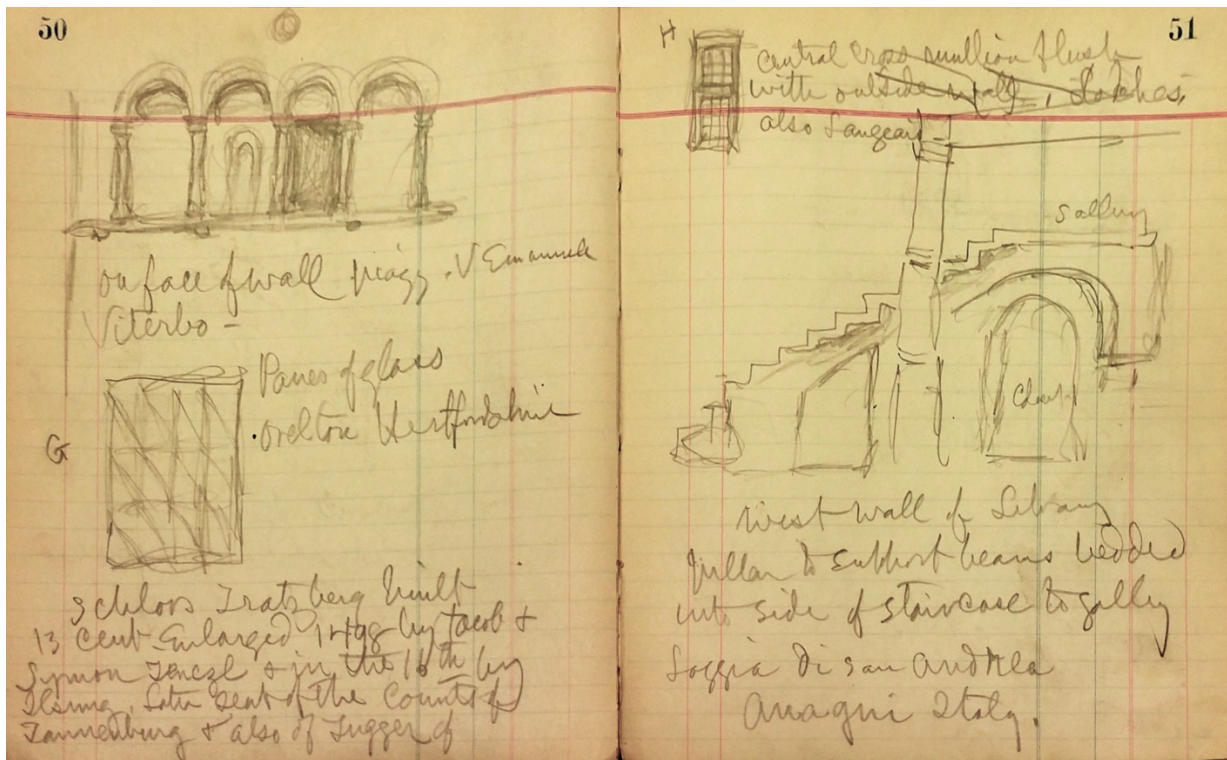 50
on face of wall piazz. V Emanuele
Viterbo -
Panes of glass
Orelton Hertfordshire
G
Schloss Tratzberg built
13 cent. Enlarged 1498 by Jacob +
Symon Tenczl + in the 16th by
Ilsung. Later seat of the Counts of
Tannenburg + also of Fugger of
51
H
central cross mullion flush
with outside wall, Loches,
also Langeais
Gallery
Chest
West wall of Library
Pillar to support beams bedded
into side of staircase to gallery
Loggia di San Andrea
Anagni Italy.